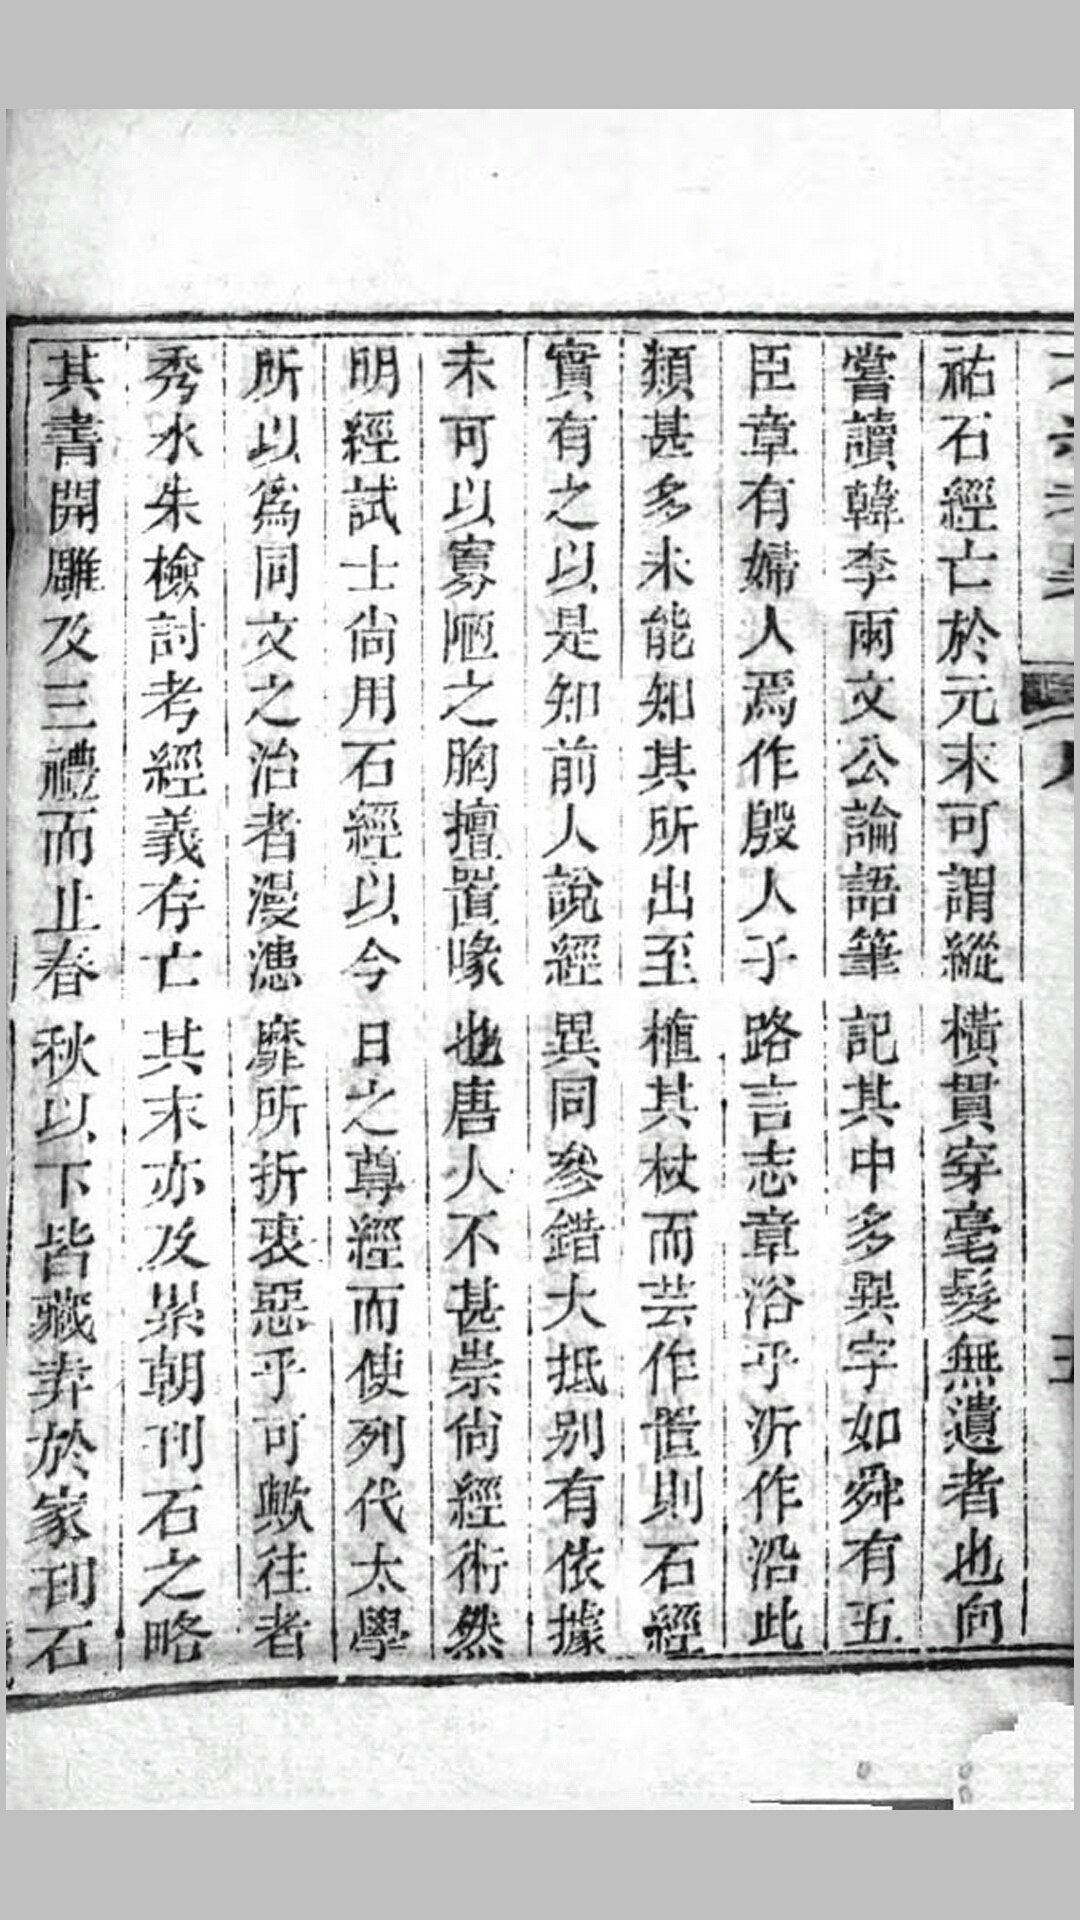 祐石經亡於元末可謂縱橫貫穿毫髮無遺者也向
嘗讀韓李兩文公論語筆記其中多異字如舜有五
臣章有婦人焉作殷人子路言志章浴乎沂作沿此
類甚多未能知其所出至植其杖而芸作置則石經
實有之以是知前人說經異同參錯大抵別有依據
未可以寡陋之胸擅置喙也唐人不甚崇尚經術然
明經試士尚用石經以今日之尊經而使列代太學
所以為同文之治者漫漶靡所折衷惡乎可歟往者
秀水朱檢討考經義存亡其末亦及累朝刊石之略
其書開雕及三禮而止春秋以下皆藏弆於家刊石